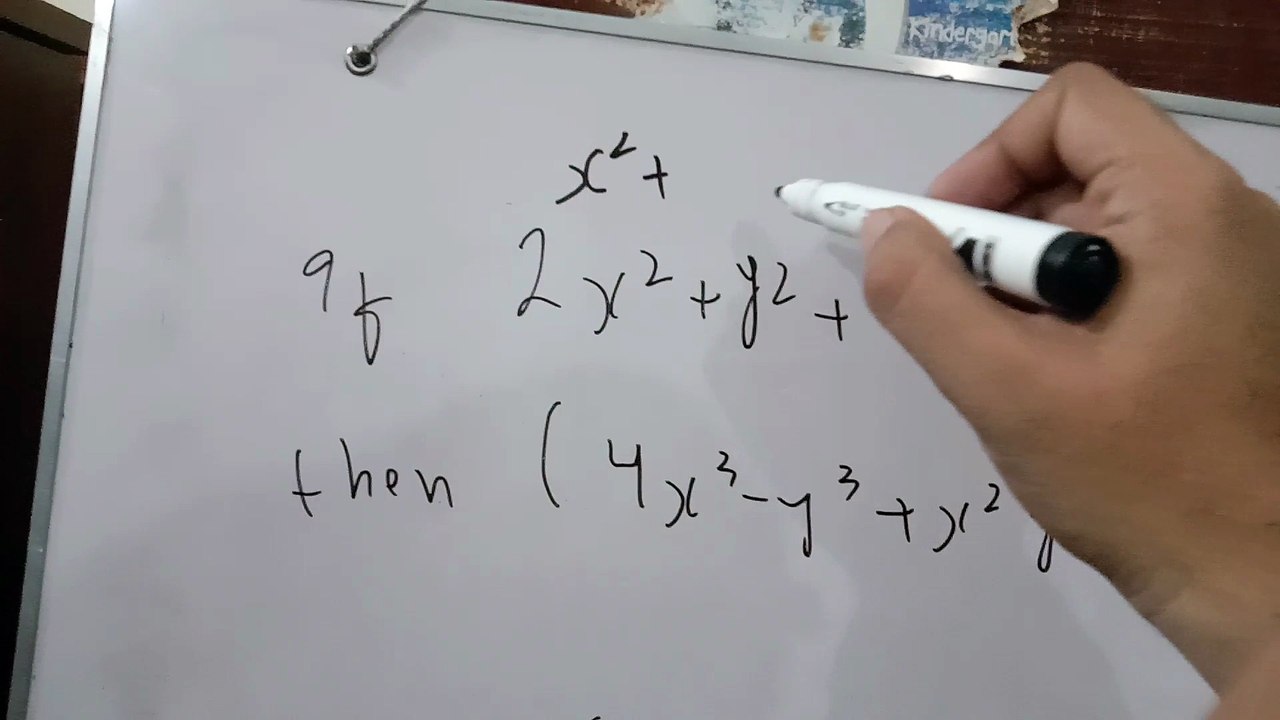 Kindergar
x² +
If 2x² + y² +
then ( 4x³ - y³ + x² y